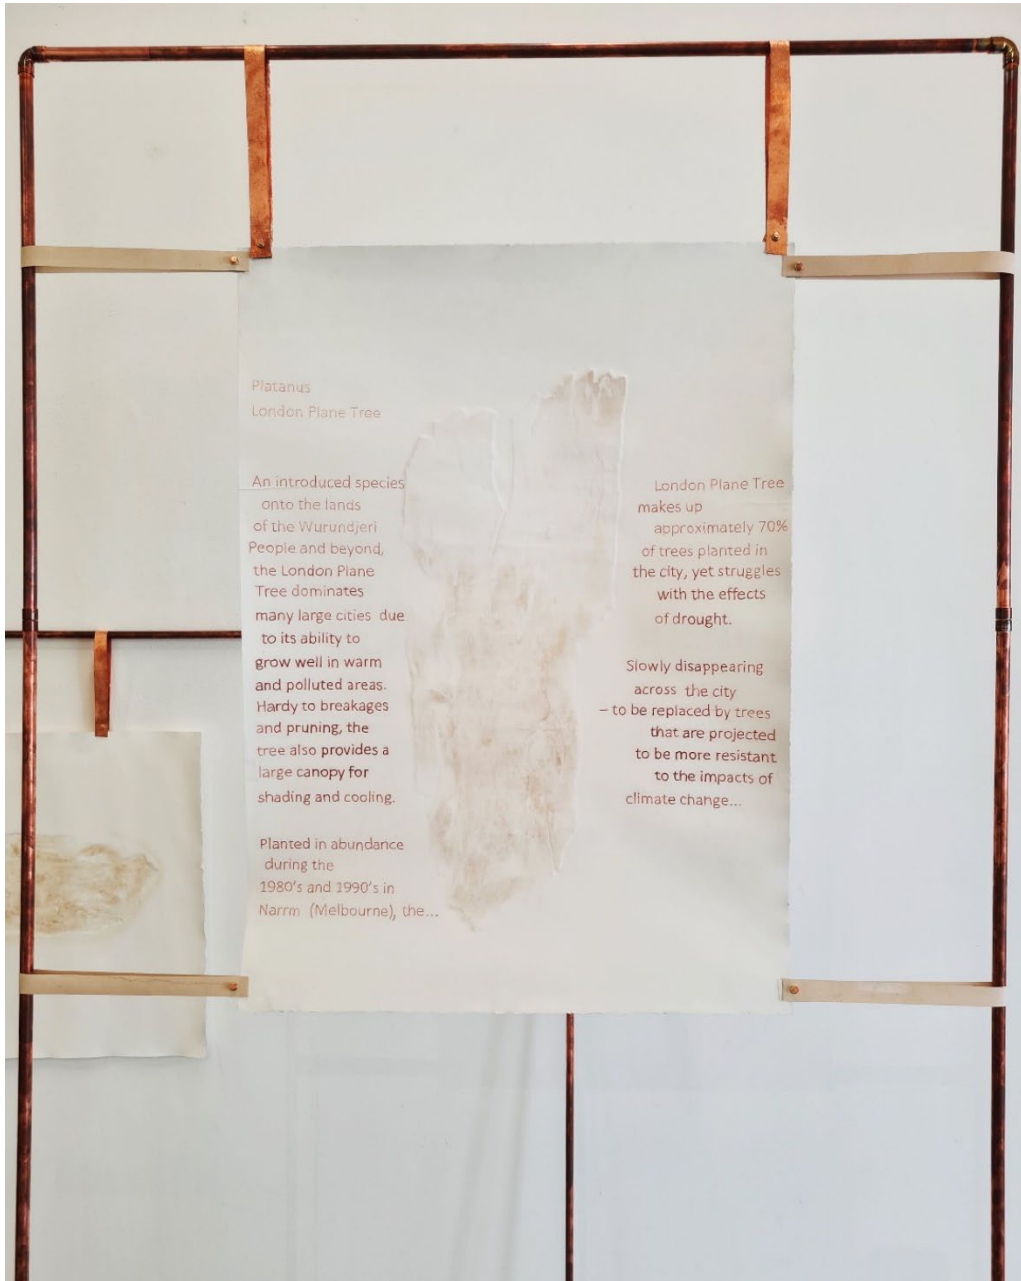 Platanus
London Plane Tree
An introduced species
onto the lands
of the Wurundjeri
People and beyond,
the London Plane
Tree dominates
many large cities due
to its ability to
grow well in warm
and polluted areas.
Hardy to breakages
and pruning, the
tree also provides a
large canopy for
shading and cooling.
Planted in abundance
during the
1980's and 1990's in
Narrm (Melbourne), the...
London Plane Tree
makes up
approximately 70%
of trees planted in
the city, yet struggles
with the effects
of drought.
Slowly disappearing
across the city
– to be replaced by trees
that are projected
to be more resistant
to the impacts of
climate change...